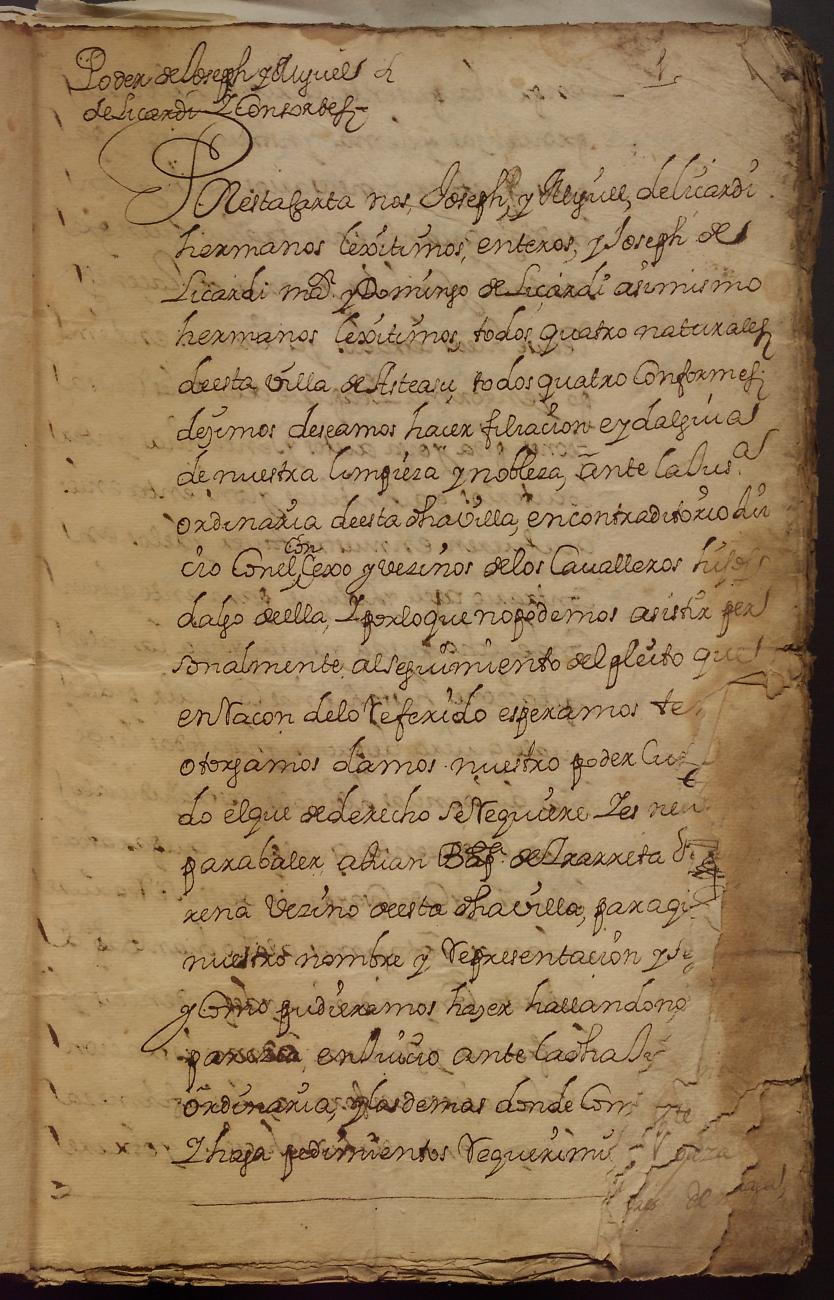 Poder de Joseph y Miguel
de Licardi Y Consortes
1
En esta Carta nos, Joseph, y Miguel, de licardi
hermanos lexitimos, enteros, y Joseph de
Licardi m.or y Domingo de Licardi asimismo
hermanos lexitimos, todos quatro naturales
de esta villa de Asteasu, todos quatro Conformes
dezimos deseamos hacer filiacion e ydalguia
de nuestra limpieza y nobleza, ante la Jus.a
ordinaria de esta dha villa, en contraditorio Jui
cio Con el Con Cexo y vezinos de los Cavalleros hijos
dalgo de ella, Y por lo que no podemos asistir per
sonalmente al seguimiento del pleito que
en Racon de lo Referido esperamos te
otorgamos damos nuestro poder Cun
do el que de derecho se Requiere Y es ne
para baler, a Juan Bap.ta de Yrarreta
rena Vezino de esta dha villa, para q
nuestro nombre y Representacion y
y Como pudieramos hazer hallandono
paresca en Juicio ante la dha Jus
ordinaria, y las demas donde Com
Y haga pedimientos Requerimi